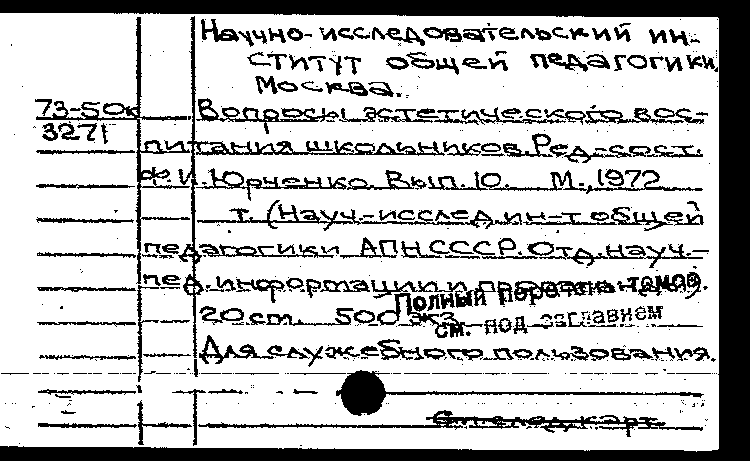 Научно-исследовательский ин-
ститут общей педагогики,
Москва.
73-50к Вопросы эстетического вос-
3271
питания школьников. Ред.-сост.
Ф.И. Юрченко. Вып. 10. М., 1972
т. (Науч.-исслед. ин-т общей
педагогики АПН СССР. Отд. науч.-
пед. информации и пропаганды).
Полный перечень томов
20 см. 500 экз.
см. под заглавием
Для служебного пользования.
См. след. карт.